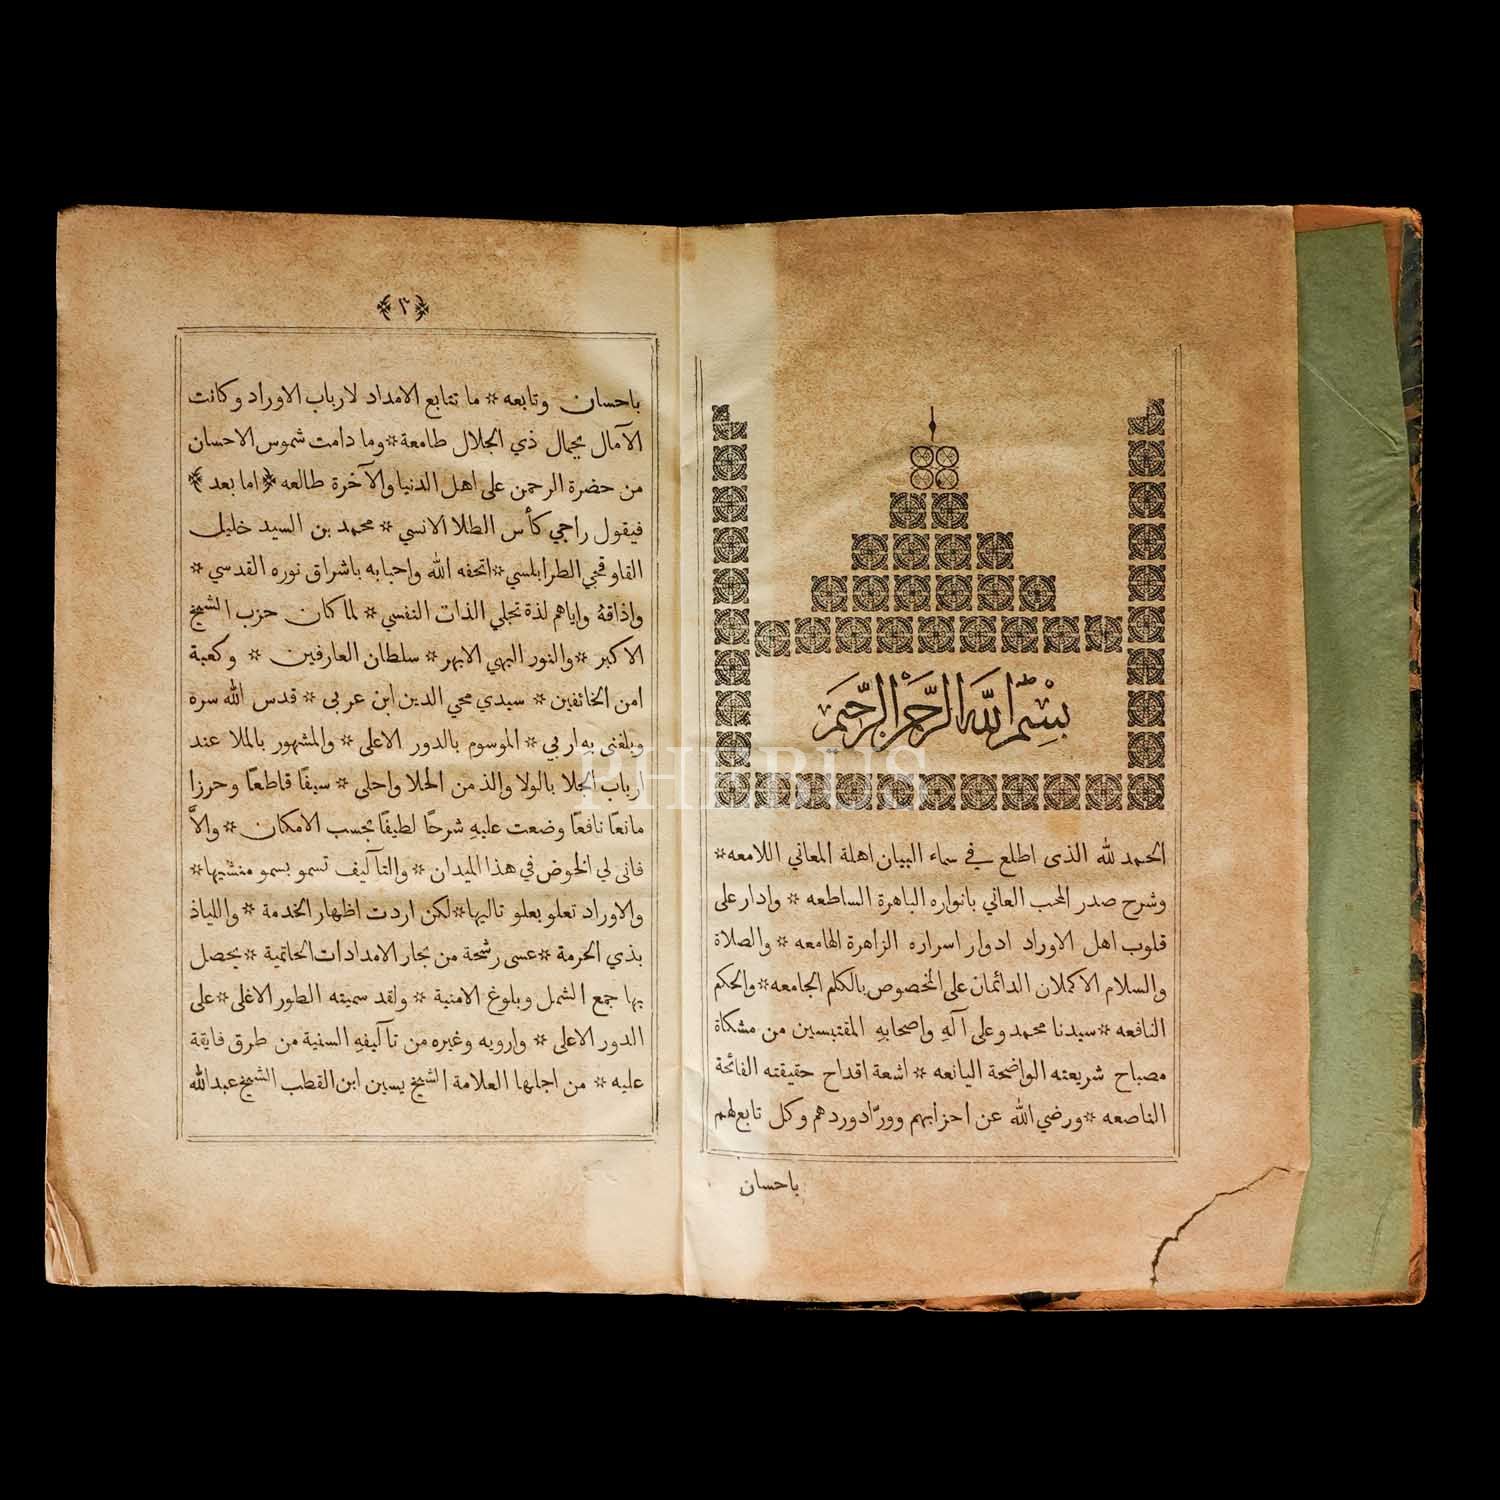 بسم الله الرحمن الرحيم
الحمد لله الذى اطلع في سماء البيان اهلة المعاني اللامعه *
وشرح صدر المحب العاني بانواره الباهرة الساطعه * وادار على
قلوب اهل الاوراد ادوار اسراره الزاهرة الهامعه * والصلاة
والسلام الاكملان الدائمان على المخصوص بالكلم الجامعه * والحكم
النافعه * سيدنا محمد وعلى آله واصحابهِ المقتبسين من مشكاة
مصباح شريعته الواضحة اليانعه * اشعة اقداح حقيقته الفائحة
الناصعه * ورضي الله عن احزابهم وورّاد وردهم وكل تابع لهم
باحسان
﴿٢﴾
باحسان وتابعه * ما تتابع الامداد لارباب الاوراد وكانت
الآمال بجمال ذي الجلال طامعة * وما دامت شموس الاحسان
من حضرة الرحمن على اهل الدنيا والآخرة طالعه ﴿ اما بعد ﴾
فيقول راجي كأس الطلا الانسي * محمد بن السيد خليل
القاوقجي الطرابلسي * اتحفه الله واحبابه باشراق نوره القدسي *
واذاقهُ واياهم لذة تجلي الذات النفسي * لما كان حزب الشيخ
الاكبر * والنور البهي الابهر * سلطان العارفين * وكعبة
امن الخائفين * سيدي محي الدين ابن عربى * قدس الله سره
وبلغنى به اربي * الموسوم بالدور الاعلى * والمشهور بالملا عند
ارباب الجلا بالولا والذ من الحلا واحلى * سيفًا قاطعًا وحرزا
مانعًا نافعًا وضعت عليهِ شرحًا لطيفًا بحسب الامكان * والاَّ
فانى لي الخوض في هذا الميدان * والتآليف تسمو بسمو منشيها *
والاوراد تعلو بعلو تاليها * لكن اردت اظهار الخدمة * واللياذ
بذي الحرمة * عسى رشحة من بحار الامدادات الخاتمية * يحصل
بها جمع الشمل وبلوغ الامنية * ولقد سميته الطور الاغلى * على
الدور الاعلى * وارويه وغيره من تآليفهِ السنية من طرق فايقة
عليه * من اجلها العلامة الشيخ يسين ابن القطب الشيخ عبدالله
PHEBUS